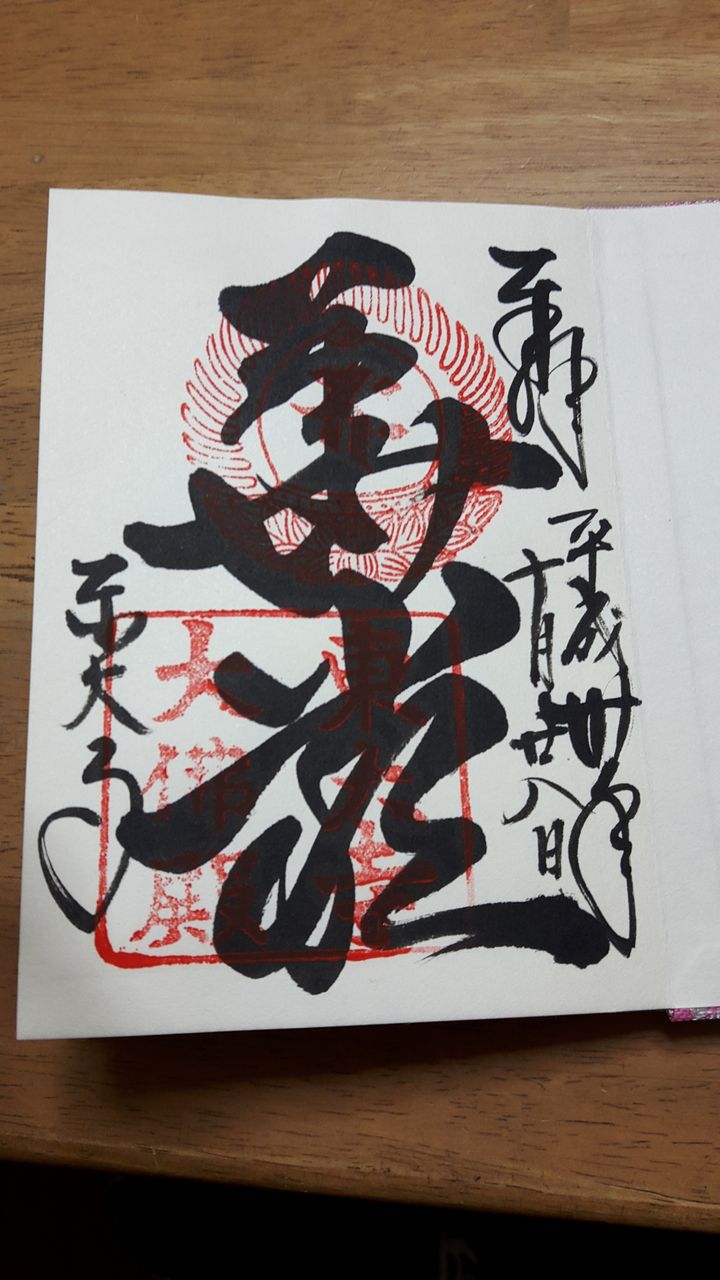 奉拝
平成卅年
十月廿八日
華厳
東大寺
大佛殿
東大寺